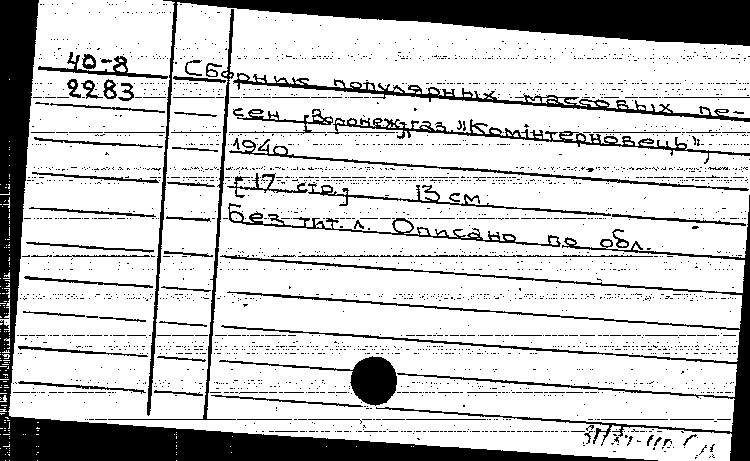 40-8
2283
Сборник популярных массовых пе-
сен [Воронеж, газ. "Комінтерновець",
1940.
[17 стр.] 13 см.
Без тит. л. Описано по обл.